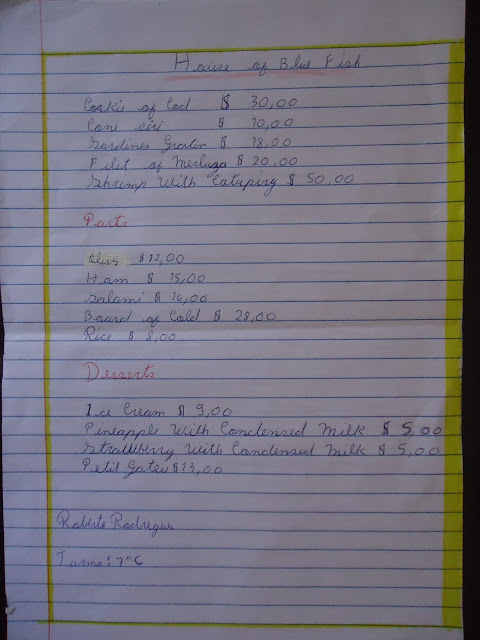 House of Blue Fish
Cookie of Cod $ 30,00
Cone siri $ 10,00
Sardines Gratin $ 18,00
Filet of Merluza $ 20,00
Shrimp With Catupiry $ 50,00
Parts
$ 12,00
Ham $ 15,00
Salami $ 14,00
Board of Cold $ 28,00
Rice $ 8,00
Desserts
Ice Cream $ 9,00
Pineapple With Condensed Milk $ 5,00
Strawberry With Condensed Milk $ 5,00
Petit Gateu $ 13,00
Roberto Rodregus
Turma: 7°C